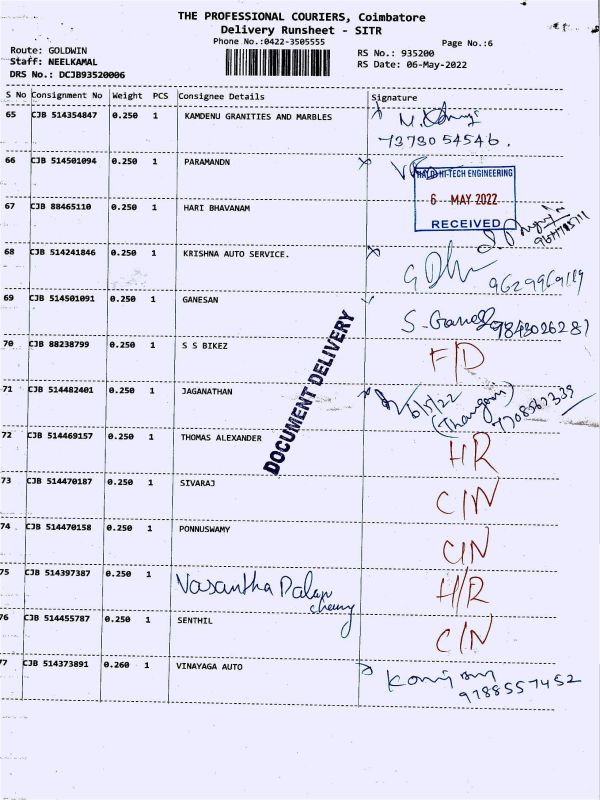 THE PROFESSIONAL COURIERS, Coimbatore
Delivery Runsheet - SITR
Phone No.:0422-3505555 Page No.:6
Route: GOLDWIN RS No.: 935200
Staff: NEELKAMAL RS Date: 06-May-2022
DRS No.: DCJB93520006
S No Consignment No Weight PCS Consignee Details Signature
65 CJB 514354847 0.250 1 KAMDENU GRANITIES AND MARBLES
7373054546.
66 CJB 514501094 0.250 1 PARAMANDN
HI-TECH ENGINEERING
6 MAY 2022
RECEIVED
67 CJB 88465110 0.250 1 HARI BHAVANAM
68 CJB 514241846 0.250 1 KRISHNA AUTO SERVICE.
9629969119
69 CJB 514501091 0.250 1 GANESAN
S-Ganesh 9843026281
70 CJB 88238799 0.250 1 S S BIKEZ F/D
DOCUMENT DELIVERY
71 CJB 514482401 0.250 1 JAGANATHAN
6/5/22
72 CJB 514469157 0.250 1 THOMAS ALEXANDER HR
73 CJB 514470187 0.250 1 SIVARAJ C/N
74 CJB 514470158 0.250 1 PONNUSWAMY C/N
75 CJB 514397387 0.250 1 Vasantha H/R
76 CJB 514455787 0.250 1 SENTHIL C/N
77 CJB 514373891 0.260 1 VINAYAGA AUTO
9788557452